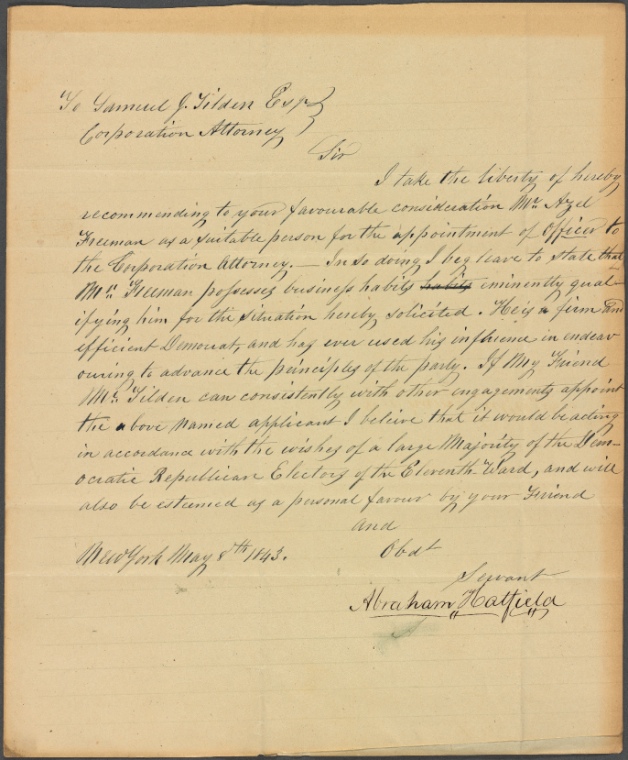 To Samuel J. Tilden Esqr
Corporation Attorney
Sir
I take the liberty of hereby
recommending to your favourable consideration Mr. Azel
Freeman as a suitable person for the appointment of Officer to
the Corporation Attorney. — In so doing I beg leave to state that
Mr. Freeman possesses business habits habits eminently qual-
ifying him for the situation hereby solicited. He is a firm and
efficient Democrat, and has ever used his influence in endeav
ouring to advance the principles of the party. If My Friend
Mr. Tilden can consistently with other engagements appoint
the above named applicant I beleive that it would be acting
in accordance with the wishes of a large Majority of the Dem-
ocratic Republican Electors of the Eleventh Ward, and will
also be esteemed as a personal favour by your Friend
and
New York May 8th 1843.
Obdt
Servant
Abraham Hatfield